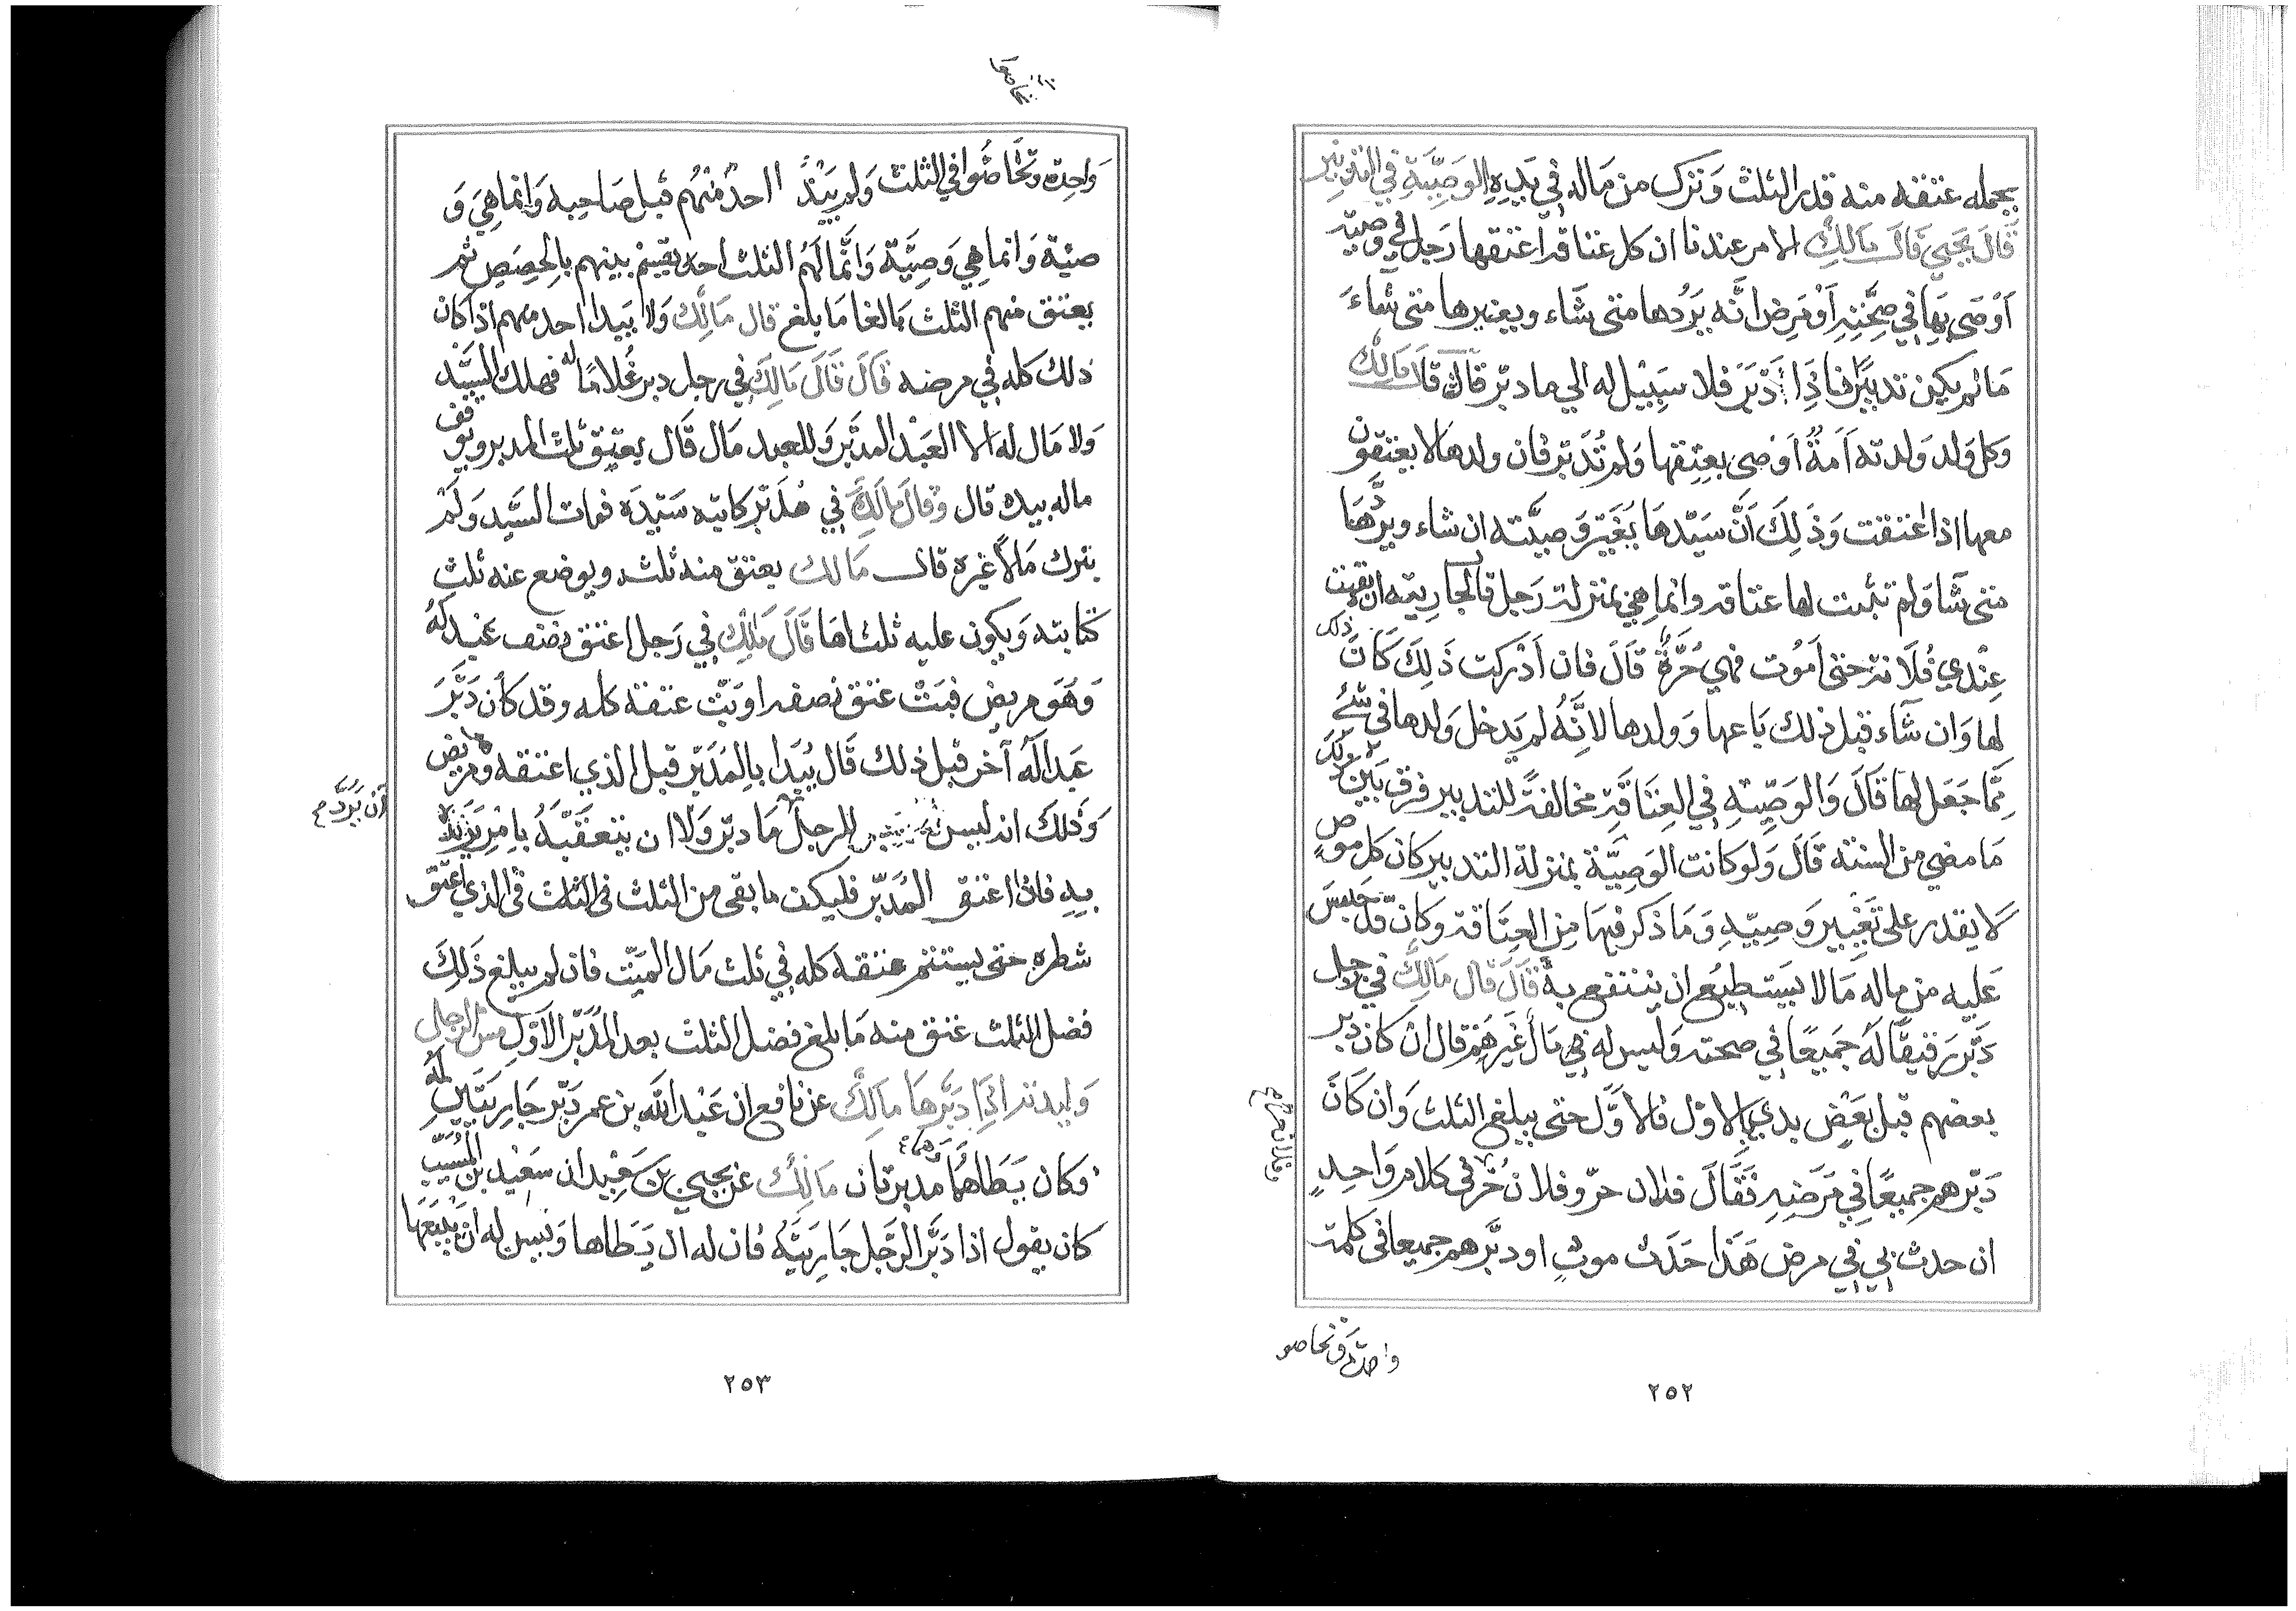 يحمله عتقه منه قدر الثلث وَترك من ماله في يَدِهِ الوَصِيَّةِ في التدبير
قَالَ يَحيَى قَالَ مَالِكٌ الامر عندنا ان كل عتاقة اعتقها رَجل في وصيّة
اَوْصَى بِهَا في صِحَّتِهِ اَوْ مَرض انَّه يَرُدها متى شَاء ويغيرها متى شاءَ
مَا لم يكن تدبيرا فاذِا دَبَّرَ فلا سَبِيْل له الي ما دبّر قال قال مَالِكٌ
وَكل وَلد وَلدته اَمَةٌ اَوْصى بعتِقها وَلم تُدَبّر فان ولدها لا يعتقون
معها اذا اعتقت وَذَلِكَ اَنَّ سَيّدهَا يُغَيّر وَصِيَّته ان شاء ويردُّهَا
متى شَا وَلم تثبت لها عتاقة وانما هِيَ بمنزلة رَجل قال لجاريته ان بقيت
عِنْدي فُلَانة حتى اَمُوت فهي حُرَّةٌ قَالَ فان اَدْركت ذَلِكَ كَانَ ذلك
لها وَان شَاء قبل ذلك بَاعها وَولدها لانَّهُ لم يَدخل وَلدها في شئ
مِّمَا جَعَل لهَا قَالَ وَالوَصِيّة في العِتَاقَة مخالفةً للتدبير فرق بَيْن ذلك
مَا مضي من السنة قَالَ وَلو كانت الوَصِيَّة بمنزلة التدبير كان كل موصٍ
لَا يقدر على تَغْيير وَصِيّةِ وَمَا ذكر فيهَا مِن العِتَاقة وكان قد حبس
عَليه من ماله مَالا يَسْتطِيْع ان ينتفع به قَالَ قال مَالِكٌ في رجل
دَبَّر رَقيقًا لَهُ جَميعًا في صحته وَليس له مَال غَيرهم قال ان كان دبر
بعضهم قبل بَعْضٍ بدئ بالاوّل فالاوَّل حتى يبلغ الثلث وَان كَانَ
دَبّرهم جميعًا في مَرَضِهِ فَقَالَ فلان حرّ وفلان حُرّ في كلام وَاحِدٍ
ان حدث بي في مرض هَذَا حَدَث موتٍ او دبَّرهم جميعا في كلمة
٢٥٢
وَاحِدة وَتحَاصُّوا في الثلث وَلم يَبْدُ احدٌ منهُم قبل صَاحبه وَانما هِيَ وَ
صيّة وَانما هِيَ وَصِيَّة وَانَّما لَهُم الثلث احد يقسم بينهم بالِحصَصِ ثم
يعتق منهم الثلث بَالغا مَا بلغ قال مَالِكٌ وَلا يَبدا احد منهم اذا كان
ذلك كله في مرضه قَالَ قَالَ مَالِكٌ في رجل دبر غُلامًا له فهلك السَّيّد
وَلا مَال له الا العَبْد المدَبَّر وَللعبد مَال قَال يعتق ثلث المدبر ويوقف
ماله بيده قال وَقالَ مَالِكٌ في مُدَبّر كاتبه سَيِّدَه فمات السَّيد وَلَمْ
يترك مَالاً غيره قال مَالك يعتق منه ثلثه ويوضع عنه ثلث
كتابته وَيكون عليه ثلثاهَا قَالَ مَالِكٌ في رَجل اعتق نصف عَبْد لَهُ
وَهَوَ مريض فبَتَّ عتق نصفه او بَتّ عتقه كله وقد كان دَبَّرَ
عَبداً لَهُ آخر قبل ذلك قَال يُبَدا بالِمُدَبَّر قبل الذي اعتقه وهو مريض
وَذَلكَ انه ليس للرجل مَا دبّر وَلَا ان يتعقَبَّهُ باِمْرٍ يَردّه
أن يَرُدَّ
بِهِ فاذا اعتق المُدَبّر فليكن ما بقى من الثلث في الثلث في الذي اعتق
شطره حتى يستتم عتقه كله في ثلث مَال الميّت فان لم يبلغ ذَلِكَ
فضل الثلث عتق منه مَا بلغ فضل الثلث بعد المُدَبَّر الاَوَّل مس الرجل
وَليدته اذَا دَبَّرهَا مَالِكٌ عن نافع ان عَبْد اللّٰه بن عمر دَبّر جَارِيَتَيْنِ لَهُ
وَكان يَطَاهُمَا وَهما مُدبرتان مَالِكٌ عن يَحيي بن سَعِيْد ان سَعَيْد بن المُسَيّب
كان يقول اذا دَبَّر الرَّجل جَارِيَتَهُ فان له ان يَطَاها وَليس له اَن يَبِيْعَهَا
٢٥٣